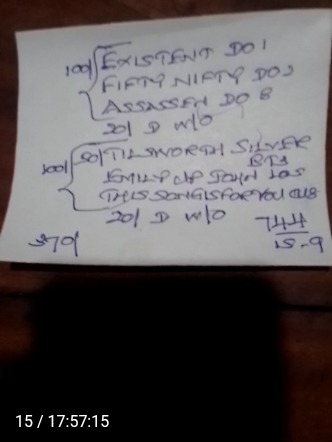 100/ EXISTENT DO 1
FIFTY NIFTY DO 2
ASSASSEN DO 8
20/ D W/O
100/ 20/ TILSWORTH SILVER
EMILY UP JOHN 105
THIS SONG IS FOR YOU CL8
20/ D W/O
370/
744
15-9
15 / 17:57:15